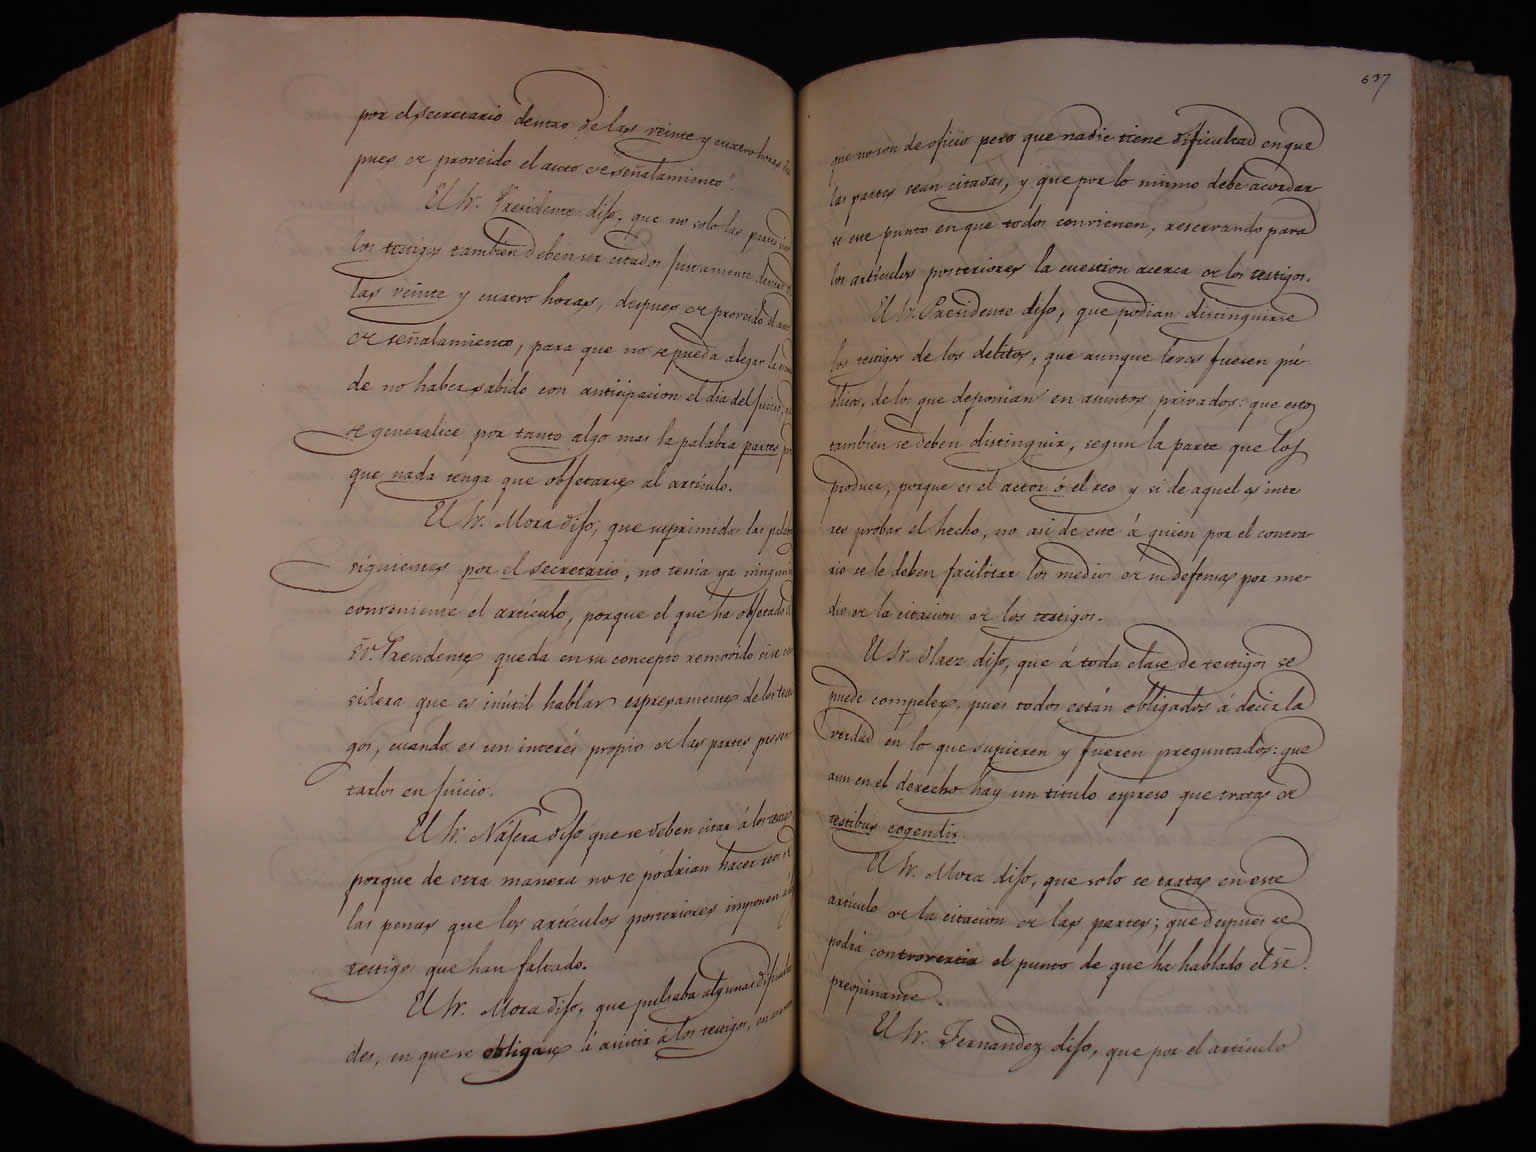 por el secretario dentro de las veinte y cuatro horas des
pues de proveido el auto de señalamiento".
El Sr. Presidente dijo, que no solo las partes sino
los testigos tambien deben ser citados juntamente dentro de
las veinte y cuatro horas, despues de proveido el auto
de señalamiento, para que no se pueda alegar la
de no haber sabido con anticipacion el dia del juicio,
se generalice por tanto algo mas la palabra partes
que nada tenga que objetarse al artículo.
El Sr. Mora dijo, que suprimidas las palab
siguientes por el secretario, no tenia ya ningun
conveniente el artículo, porque el que ha objetado el
Sr. Presidente queda en su concepto removido si se con
sidera que es inútil hablar espresamente de los testi
gos, cuando es un interés propio de las partes presen
tarlos en juicio.
El Sr. Nájera dijo que se deben citar á los testigos
porque de otra manera no se podrian hacer reos de
las penas que los artículos posteriores imponen á los
testigos que han faltado.
El Sr. Mora dijo, que pulsaba algunas dificulta
des, en que se obligase á asistir á los testigos, en
637
que no son de oficio pero que nadie tiene dificultad en que
las partes sean citadas, y que por lo mismo debe acordar
se este punto en que todos convienen, reservando para
los artículos posteriores la cuestion acerca de los testigos.
El Sr. Presidente dijo, que podian distinguirse
los testigos de los delitos, que aunque leves fuesen pú-
blicos, de los que deponian en asuntos privados: que estos
tambien se deben distinguir, segun la parte que los
produce, porque es el actor ó el reo y si de aquel es inte
res probar el hecho, no asi de este á quien por el contra-
rio se le deben facilitar los medios de su defensa por me-
dio de la citacion de los testigos.
El Sr. Olaez dijo, que á toda clase de testigos se
puede compeler, pues todos están obligados á decir la
verdad en lo que supieren y fueren preguntados: que
aun en el derecho hay un titulo espreso que trata de
testibus cogendis.
El Sr. Mora dijo, que solo se trata en este
artículo de la citacion de las partes; que despues se
podrá controvertir el punto de que ha hablado el Sr.
preopinante.
El Sr. Fernandez dijo, que por el artículo